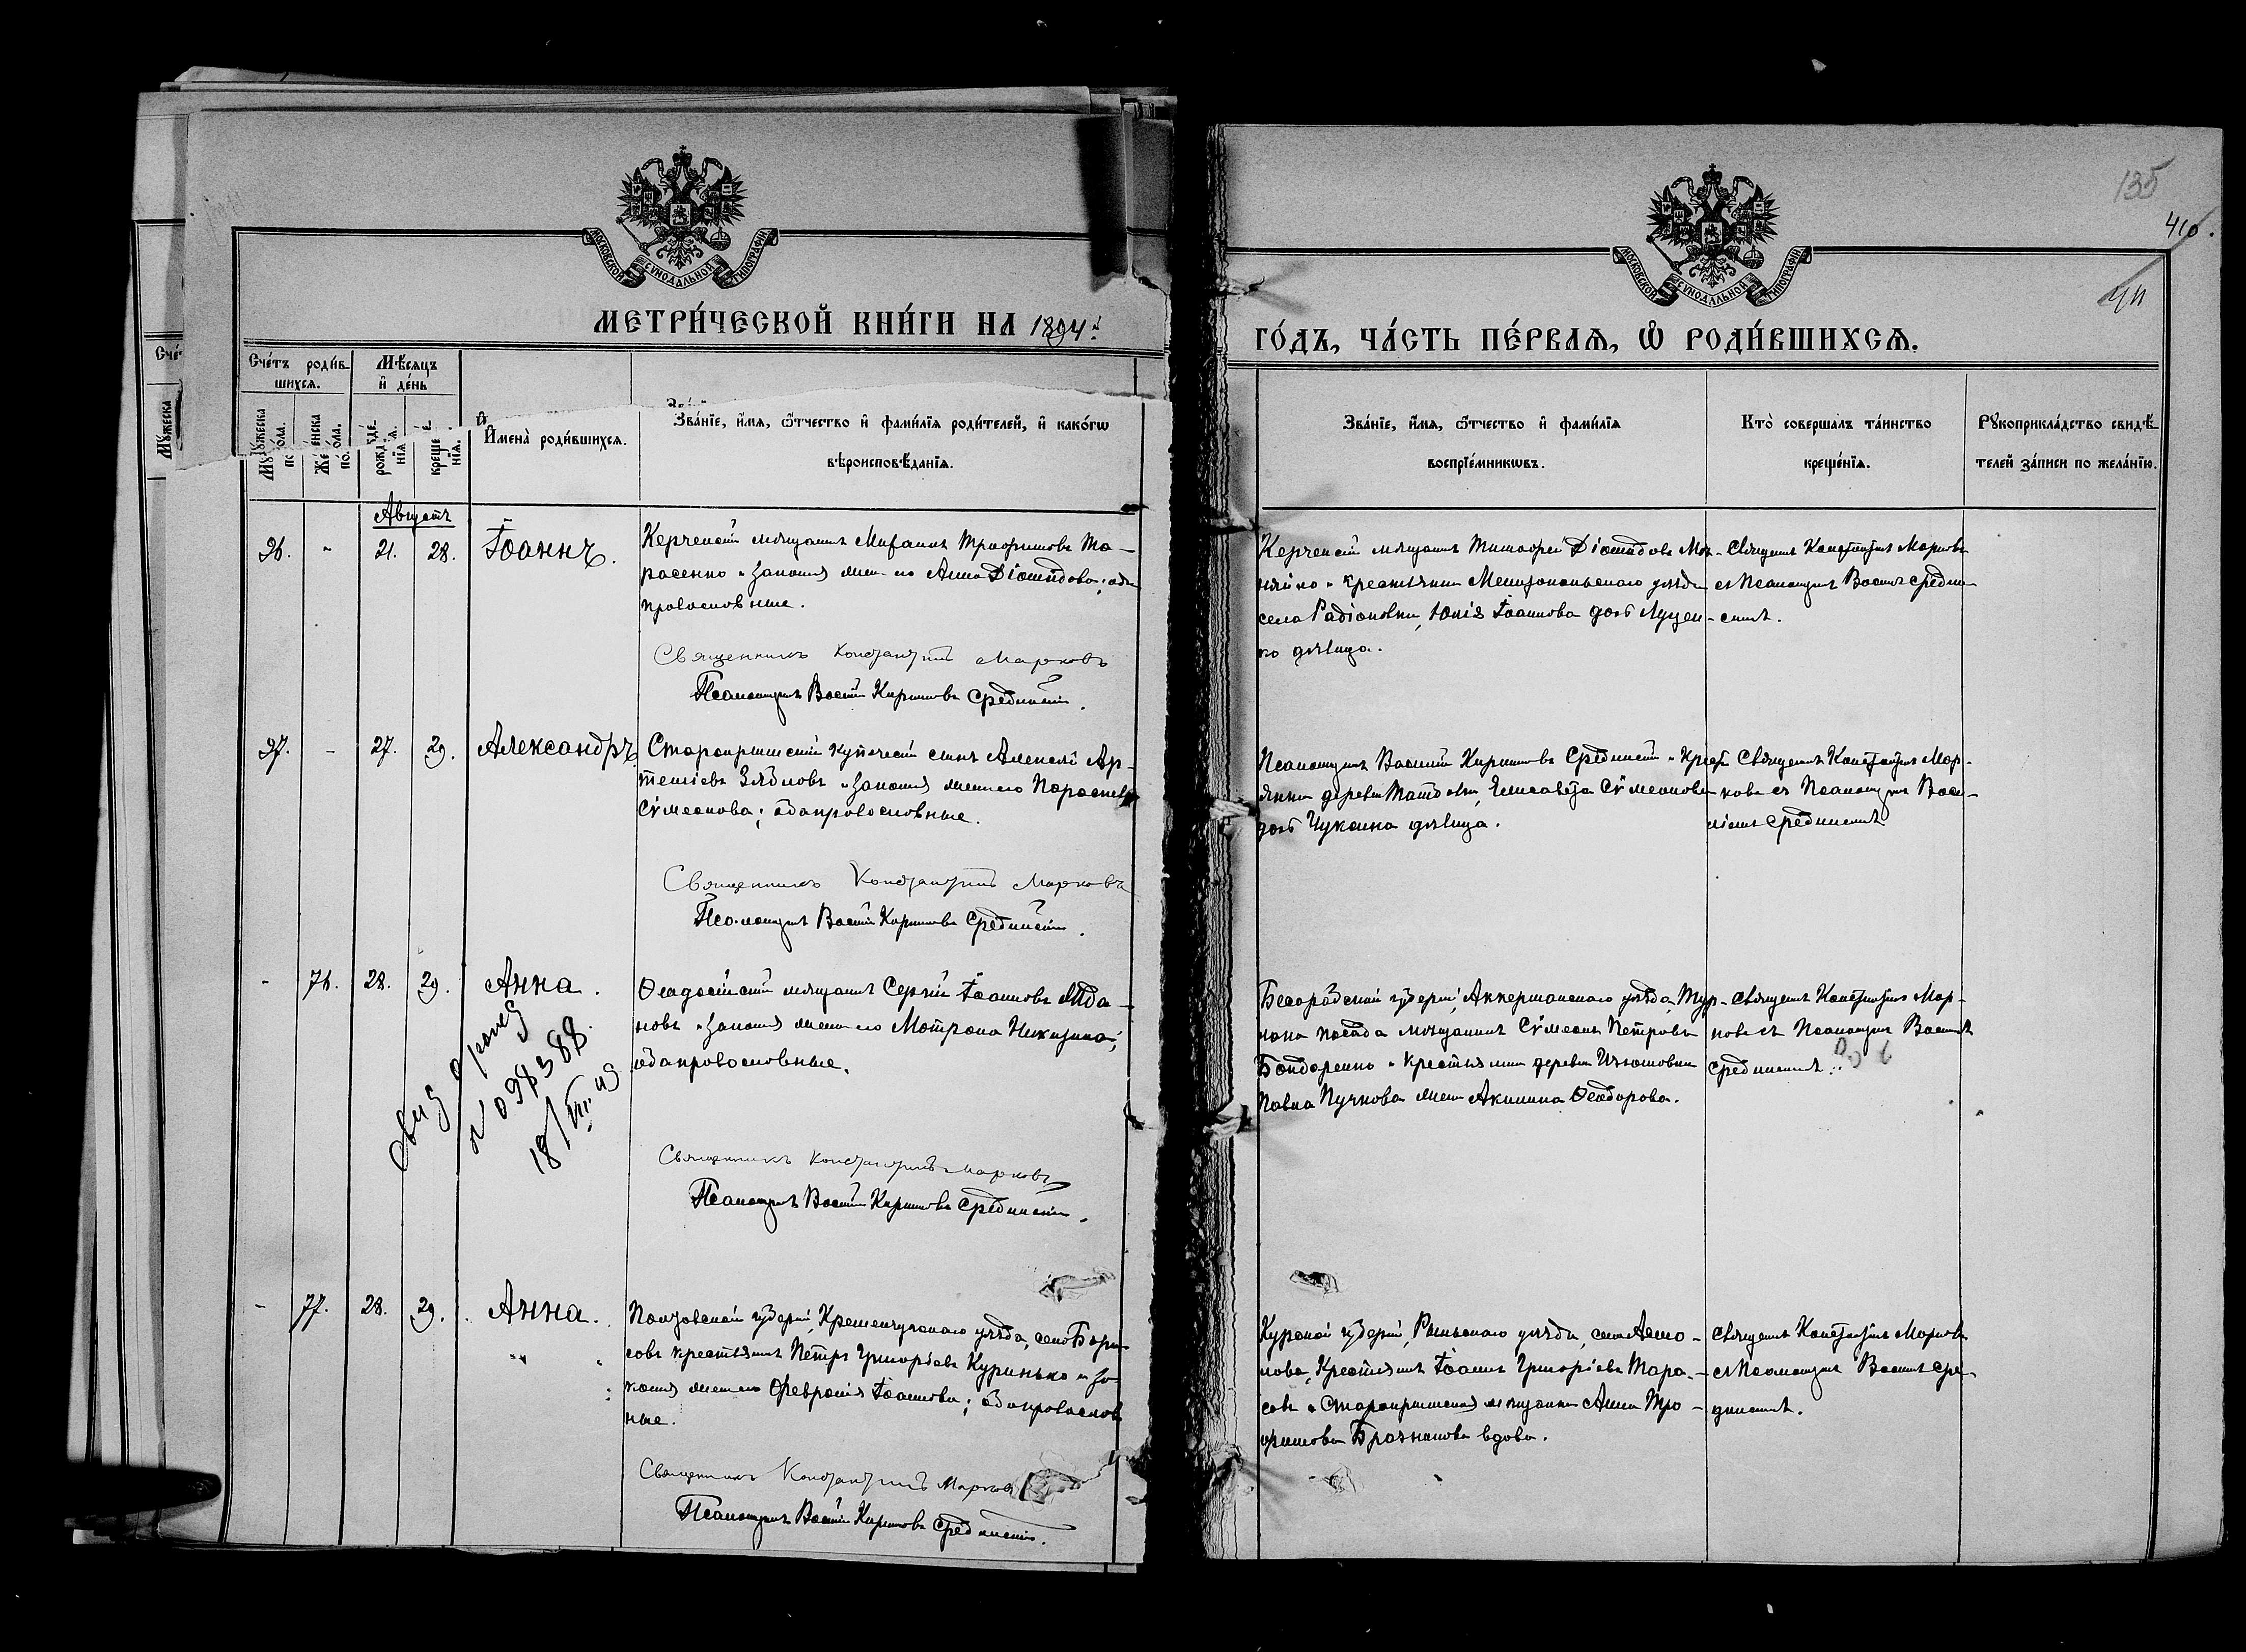 135
410.
411
МОСКОВСКОЙ СѴНОДАЛЬНОЙ ТИПОГРАФІИ
МОСКОВСКОЙ СѴНОДАЛЬНОЙ ТИПОГРАФІИ
МЕТРИ́ЧЕСКОЙ КНИ́ГИ НА 1894й
ГО́ДЪ, ЧА́СТЬ ПЕ́РВАѦ, Ѽ РОДИ́ВШИХСѦ.
Сче́тъ роди́в-
шихся.
Мѣ́сяцъ
и҆ де́нь
Му́жеска
пола.
Же́нска
пола.
рожде́-
нїя.
креще́-
нїя.
И҆мена̀ роди́вшихся.
Зва́нїе, и҆́мя, ѻ҆́тчество и҆ фами́лїя роди́телей, и҆ како́гѡ
вѣроисповѣ́данїя.
Зва́нїе, и҆́мя, ѻ҆́тчество и҆ фами́лїя
воспрїе́мникѡвъ.
Кто̀ соверша́лъ та́инство
креще́нїя.
Рꙋкоприкла́дство свидѣ́-
телей за́писи по жела́нїю.
Августъ
96. - 21. 28. Іоаннъ.
Керченскій мѣщанинъ Михаилъ Трифоновъ Та-
расенко и законная жена его Анна Діомидова; оба
православные.
Священникъ Константинъ Марковъ
Псаломщикъ Василій Кирилловъ Срединскій.
Керченскій мѣщанинъ Тимофей Діомидовъ
и крестьянка Мелитопольскаго уѣзда
села Радіоновки, Юлія Іоаннова дочь Луцен-
ко дѣвица.
Священникъ Константинъ Марковъ
съ Псаломщикомъ Василіемъ Средин-
скимъ.
97. - 27. 29. Александръ
Старокрымскій купеческій сынъ Алексѣй Ар-
теміевъ Зябловъ и законная жена его Параскева
Сѵмеонова; оба православные.
Священникъ Константинъ Марковъ
Псаломщикъ Василій Кирилловъ Срединскій.
Псаломщикъ Василій Кирилловъ Срединскій и Крест-
янка деревни Елисавета Сѵмеонова
дочь Чуксина дѣвица.
Священникъ Константинъ Мар-
ковъ съ Псаломщикомъ Васи-
ліемъ Срединскимъ
- 76. 28. 29. Анна.
Ѳеодосійскій мѣщанинъ Сергій Іоанновъ Жда-
новъ и законная жена его Матрона Никитина;
оба православные.
Священникъ Константинъ Марковъ
Псаломщикъ Василій Кирилловъ Срединскій.
Бессарабской губерніи, Аккерманскаго уѣзда,
посада мѣщанинъ Сѵмеонъ Петровъ
Бондаренко и крестьянина деревни Изюмовки
Павла Пучкова жена Акилина Ѳеодорова.
Священникъ Константинъ Мар-
ковъ съ Псаломщикомъ Василіемъ
Срединскимъ.
18/VIII 49
- 77. 28. 29. Анна.
Полтавской губерніи, Кременчугскаго уѣзда, села Бори-
совъ крестьянинъ Петръ Григорьевъ Куринько и за-
конная жена его Февронія Іоаннова; оба православ-
ные.
Священникъ Константинъ Марковъ
Псаломщикъ Василій Кирилловъ Срединскій.
Курской губерніи, Рыльскаго уѣзда, села
Крестьянинъ Іоаннъ Григорьевъ Тара-
совъ и Старокрымская мѣщанка Анна Тро-
фимова Бражникова вдова.
Священникъ Константинъ Марковъ
съ Псаломщикомъ Василіемъ Сре-
динскимъ.